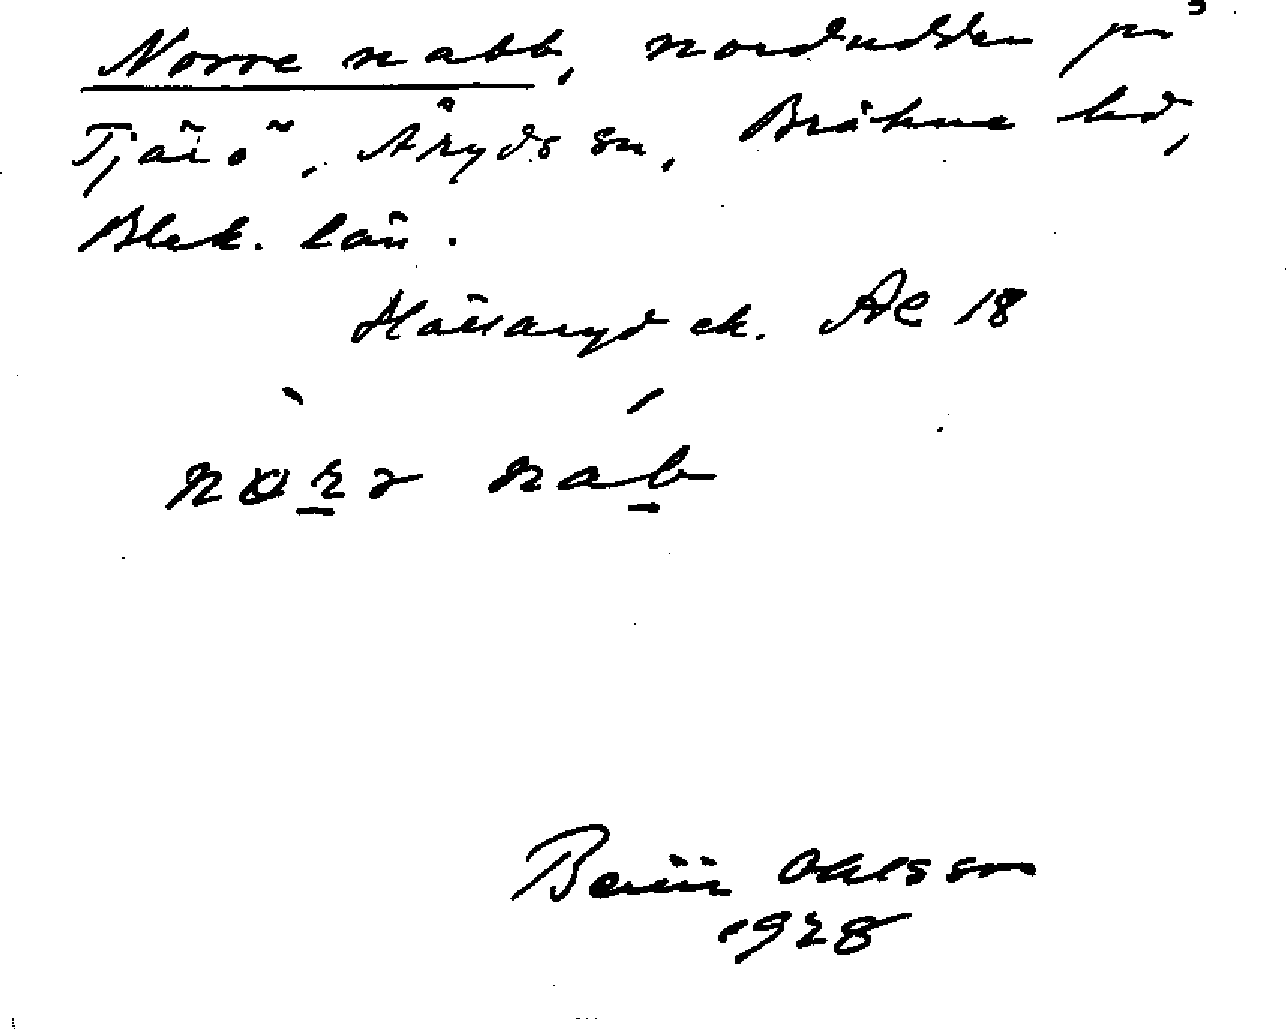 Norre nabb, nordudden på
Tjärö, Åryds sn, Bräkne hd,
Blek. län.
Hällaryd ek. Ae 18
Ohlsson
1928